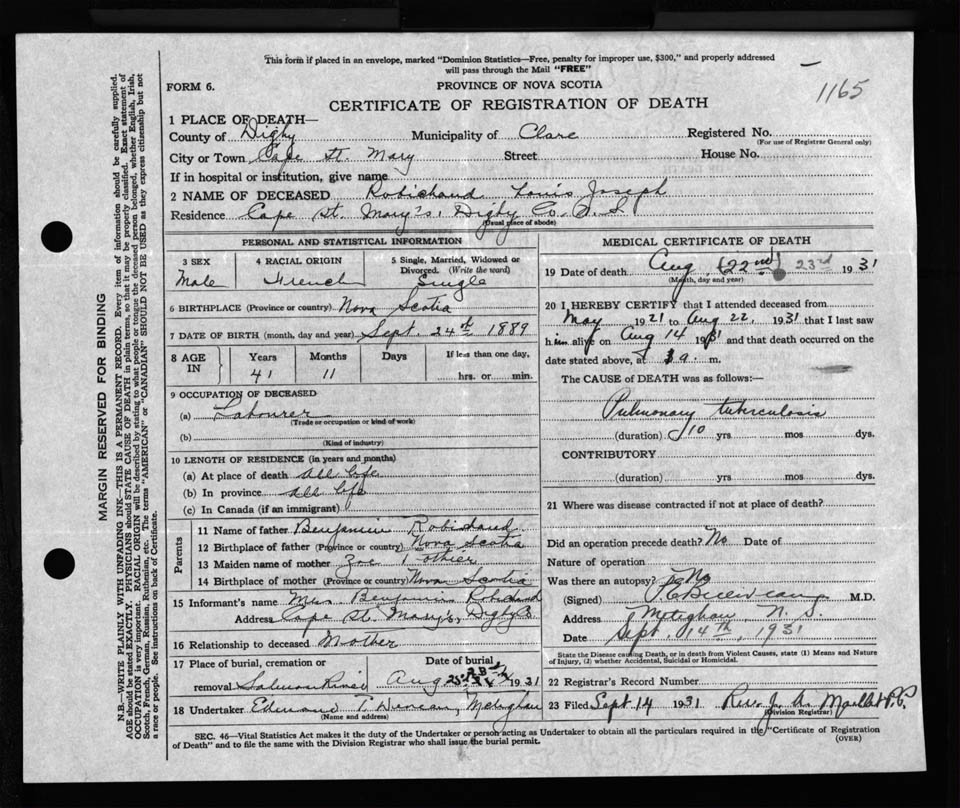 This form if placed in an envelope, marked "Dominion Statistics—Free, penalty for improper use, $300," and properly addressed
will pass through the Mail "FREE"
1165
FORM 6.
PROVINCE OF NOVA SCOTIA
CERTIFICATE OF REGISTRATION OF DEATH
1 PLACE OF DEATH—
County of Digby Municipality of Clare Registered No.
(For use of Registrar General only)
City or Town Cape St. Mary Street House No.
If in hospital or institution, give name
2 NAME OF DECEASED Robichaud Louis Joseph
Residence Cape St. Mary's, Digby Co. N. S
(Usual place of abode)
PERSONAL AND STATISTICAL INFORMATION
3 SEX 4 RACIAL ORIGIN 5 Single, Married, Widowed or
Divorced. (Write the word)
Male French Single
6 BIRTHPLACE (Province or country) Nova Scotia
7 DATE OF BIRTH (month, day and year) Sept. 24th 1889
8 AGE IN Years Months Days If less than one day,
41 11 hrs. or min.
9 OCCUPATION OF DECEASED
(a) Labourer
(Trade or occupation or kind of work)
(b)
(Kind of industry)
10 LENGTH OF RESIDENCE (in years and months)
(a) At place of death all life
(b) In province all life
(c) In Canada (if an immigrant)
Parents
11 Name of father Benjamin Robichaud
12 Birthplace of father (Province or country) Nova Scotia
13 Maiden name of mother Zoe Pothier
14 Birthplace of mother (Province or country) Nova Scotia
15 Informant's name Mrs Benjamin Robichaud
Address Cape St. Mary's, Digby Co.
16 Relationship to deceased Mother
17 Place of burial, cremation or Date of burial
removal Salmon River Aug 1931
18 Undertaker Edmond T. Meteghan
(Name and address)
MEDICAL CERTIFICATE OF DEATH
19 Date of death Aug. (22nd) 23rd 1931
(Month, day and year)
20 I HEREBY CERTIFY that I attended deceased from
May 1921 to Aug 22, 1931 that I last saw
him alive on Aug 14 1931 and that death occurred on the
date stated above, at a. m.
The CAUSE of DEATH was as follows:—
Pulmonary tuberculosis
(duration) 10 yrs mos dys.
CONTRIBUTORY
(duration) yrs mos dys.
21 Where was disease contracted if not at place of death?
Did an operation precede death? No Date of
Nature of operation
Was there an autopsy? No
(Signed) M.D.
Address Meteghan N. S.
Date Sept. 14th, 1931
State the Disease causing Death, or in death from Violent Causes, state (1) Means and Nature
of Injury, (2) whether Accidental, Suicidal or Homicidal.
22 Registrar's Record Number
23 Filed Sept 14 1931 Rev. J. A. Maillet P.P.
(Division Registrar)
SEC. 46—Vital Statistics Act makes it the duty of the Undertaker or person acting as Undertaker to obtain all the particulars required in the "Certificate of Registration
of Death" and to file the same with the Division Registrar who shall issue the burial permit.
(OVER)
MARGIN RESERVED FOR BINDING
N.B.—WRITE PLAINLY WITH UNFADING INK—THIS IS A PERMANENT RECORD. Every item of information should be carefully supplied.
AGE should be stated EXACTLY. PHYSICIANS should STATE CAUSE OF DEATH in plain terms, so that it may be properly classified. Exact statement of
OCCUPATION is very important. RACIAL ORIGIN will be described by stating to what people or tongue the deceased person belonged, whether English, Irish,
Scotch, French, German, Russian, Ruthenian, etc. The terms "AMERICAN" or "CANADIAN" SHOULD NOT BE USED as they express citizenship but not
a race or people. See instructions on back of Certificate.